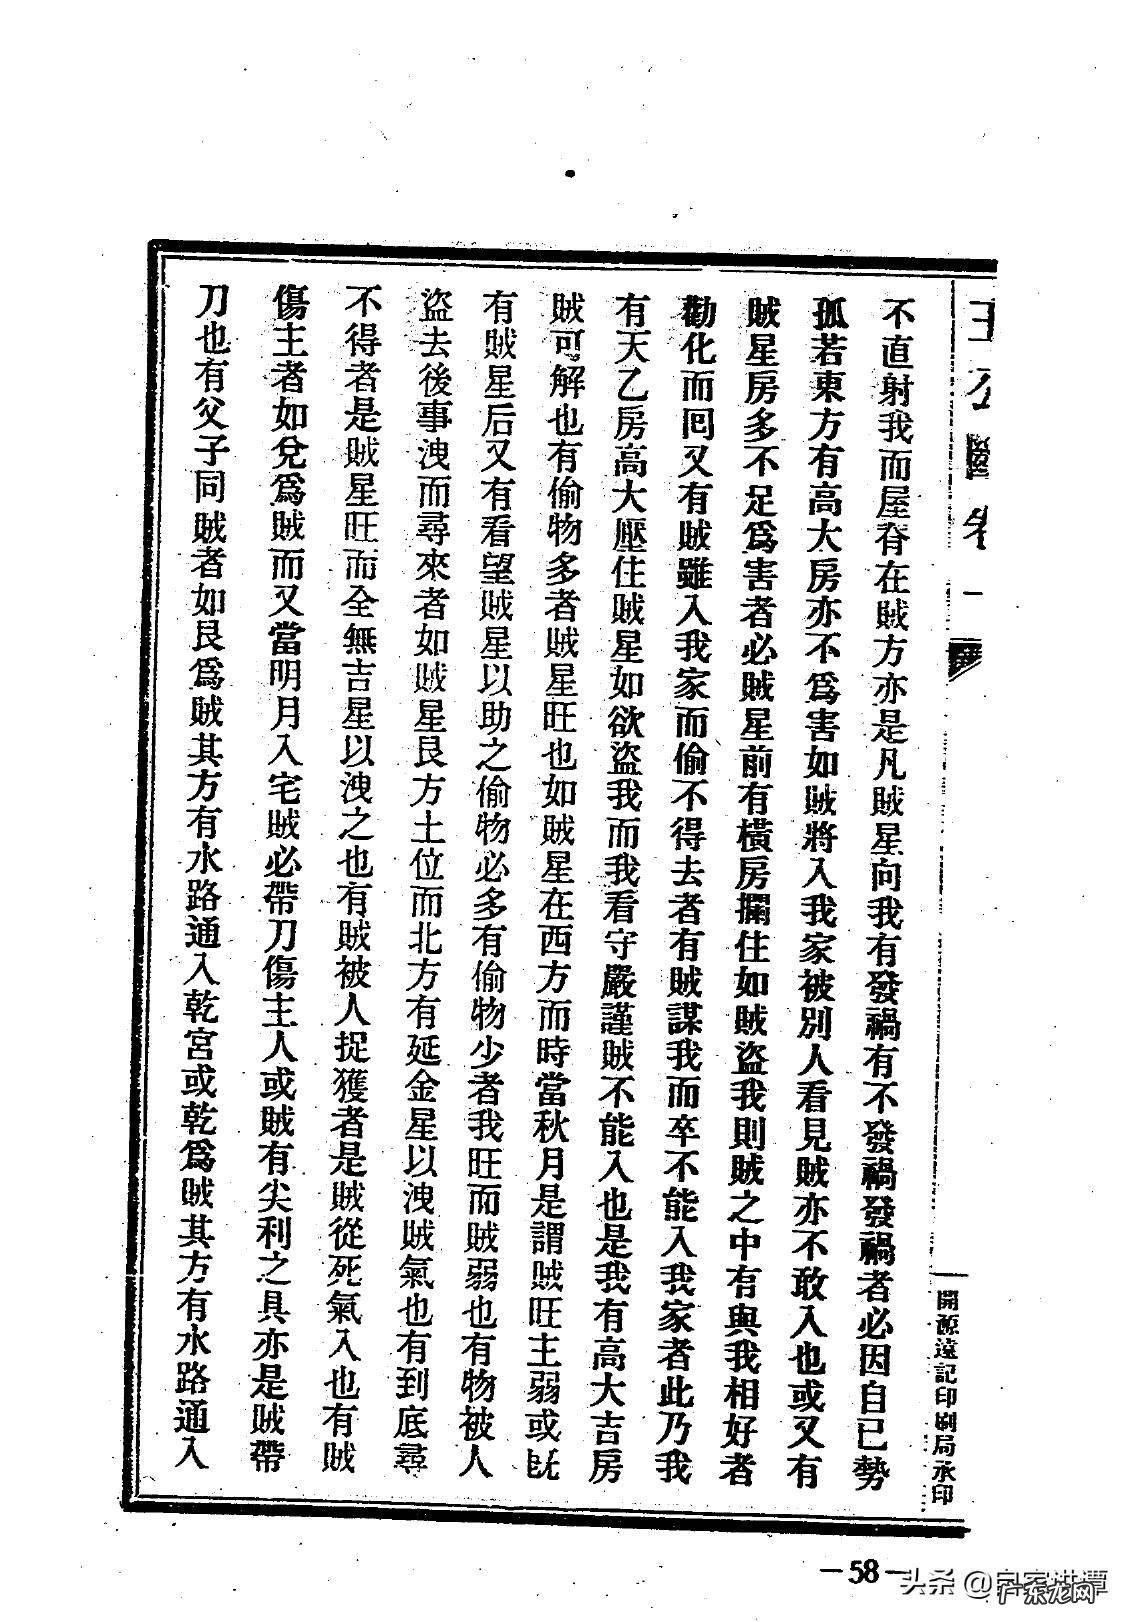 不直射我而屋脊在賊方亦是凡賊星向我有發禍有不發禍發禍者必因自己勢
孤若東方有高大房亦不爲害如賊將入我家被別人看見賊亦不敢入也或又有
賊星房多不足爲害者必賊星前有橫房攔住如賊盜我則賊之中有與我相好者
勸化而囘又有賊雖入我家而偷不得去者有賊謀我而卒不能入我家者此乃我
有天乙房高大壓住賊星如欲盜我而我看守嚴謹賊不能入也是我有高大吉房
賊可解也有偷物多者賊星旺也如賊星在西方而時當秋月是謂賊旺主弱或既
有賊星后又有看望賊星以助之偷物必多有偷物少者我旺而賊弱也有物被人
盜去後事洩而尋來者如賊星艮方土位而北方有延金星以洩賊氣也有到底尋
不得者是賊星旺而全無吉星以洩之也有賊被人捉獲者是賊從死氣入也有賊
傷主者如兌爲賊而又當明月入宅賊必帶刀傷主人或賊有尖利之具亦是賊帶
刀也有父子同賊者如艮爲賊其方有水路通入乾宮或乾爲賊其方有水路通入
開源遠記印刷局承印
—58—
头条
广东龙网